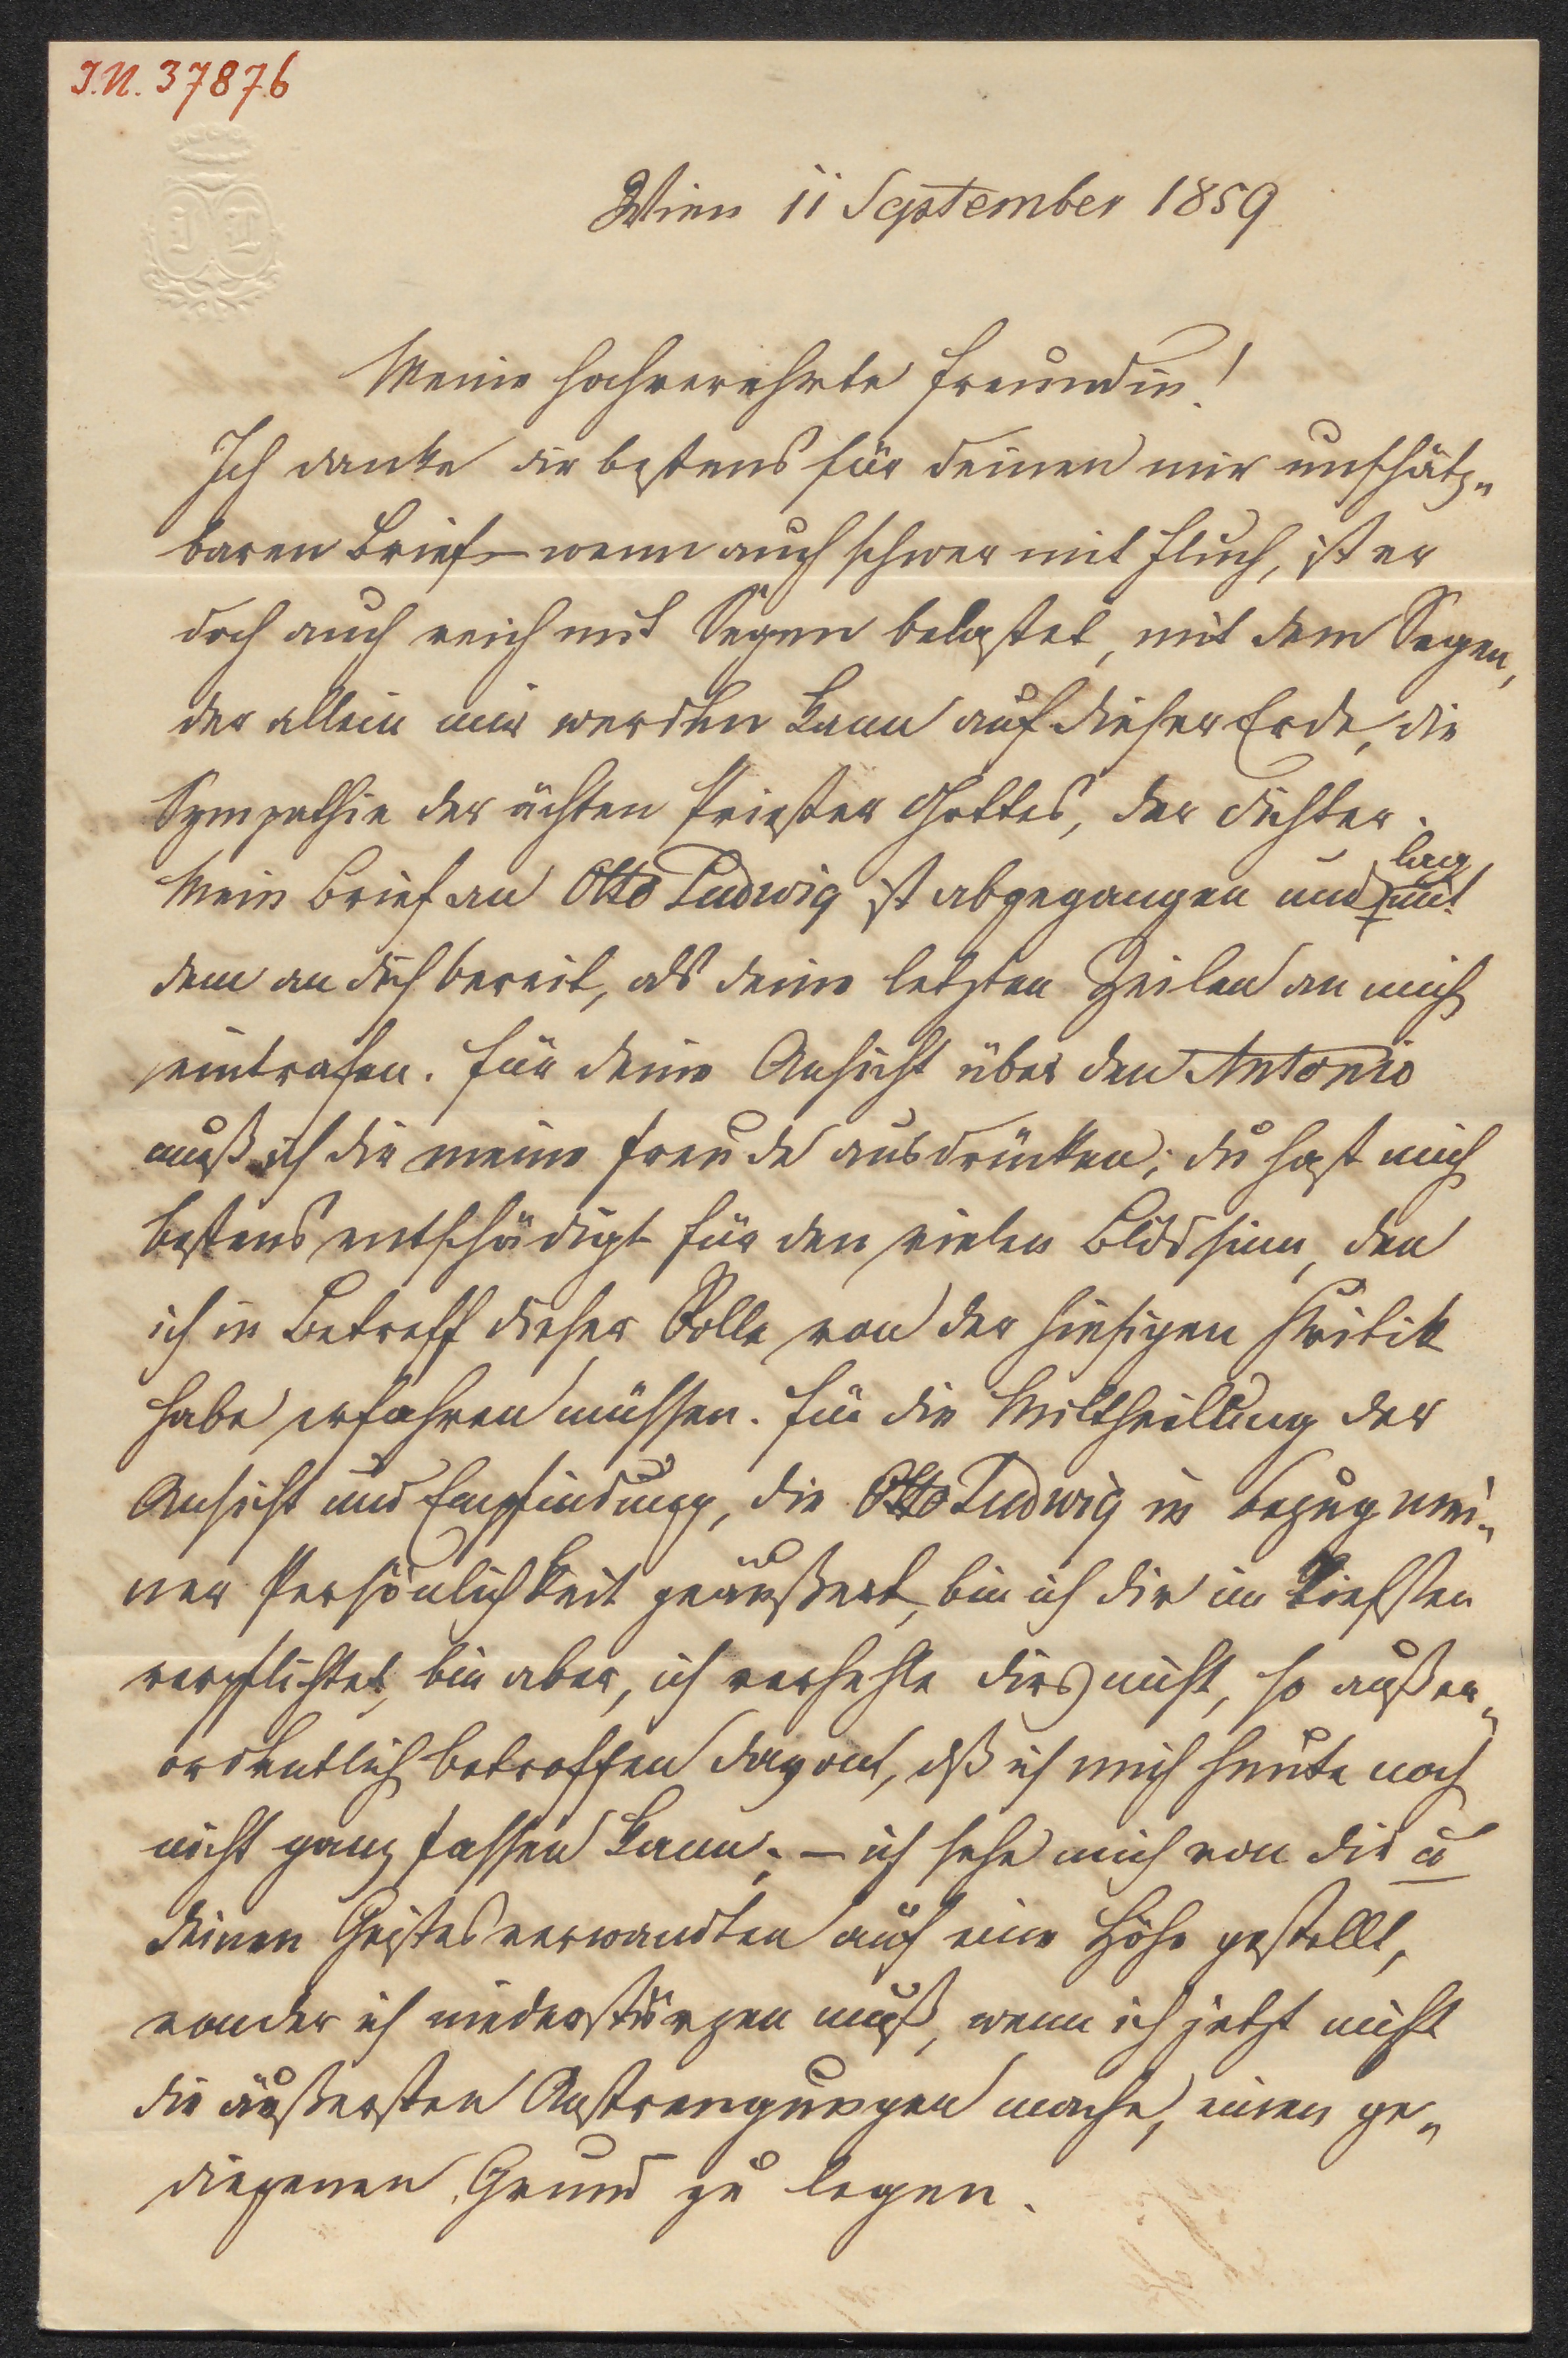 I.N. 37876
J L
Wien 11 September 1859
Meine hochverehrte Freundin!
Ich danke dir bestens für deinen mir unschätz-
baren Brief – wenn auch schwer mit Fluch, ist er
doch auch reich mit Segen belastet, mit dem Segen,
der allein mir werden kann auf dieser Erde, die
Sympathie der ächten Priester Gottes, der Dichter.
Mein Brief an Otto Ludwig ist abgegangen und lag mit
dem an dich bereit, als deine letzten Zeilen an mich
eintrafen. Für deine Ansicht über den Antonio
muß ich dir meine Freude ausdrücken; du hast mich
bestens entschädigt für den vielen Blödsinn, den
ich in Betreff dieser Rolle von der hiesigen Kritik
habe erfahren müssen. Für die Mittheilung der
Ansicht und Empfindung, die Otto Ludwig in Bezug mei-
ner Persönlichkeit geäußert, bin ich dir im Tiefsten
verpflichtet, bin aber, ich verhehle dirs nicht, so außer-
ordentlich betroffen davon, dß ich mich heute noch
nicht ganz fassen kann; – ich sehe mich von dir u
deinen Geistesverwandten auf eine Höhe gestellt,
von der ich niederstürzen muß, wenn ich jetzt nicht
die äußersten Anstrengungen mache, einen ge-
diegenen Grund zu legen.